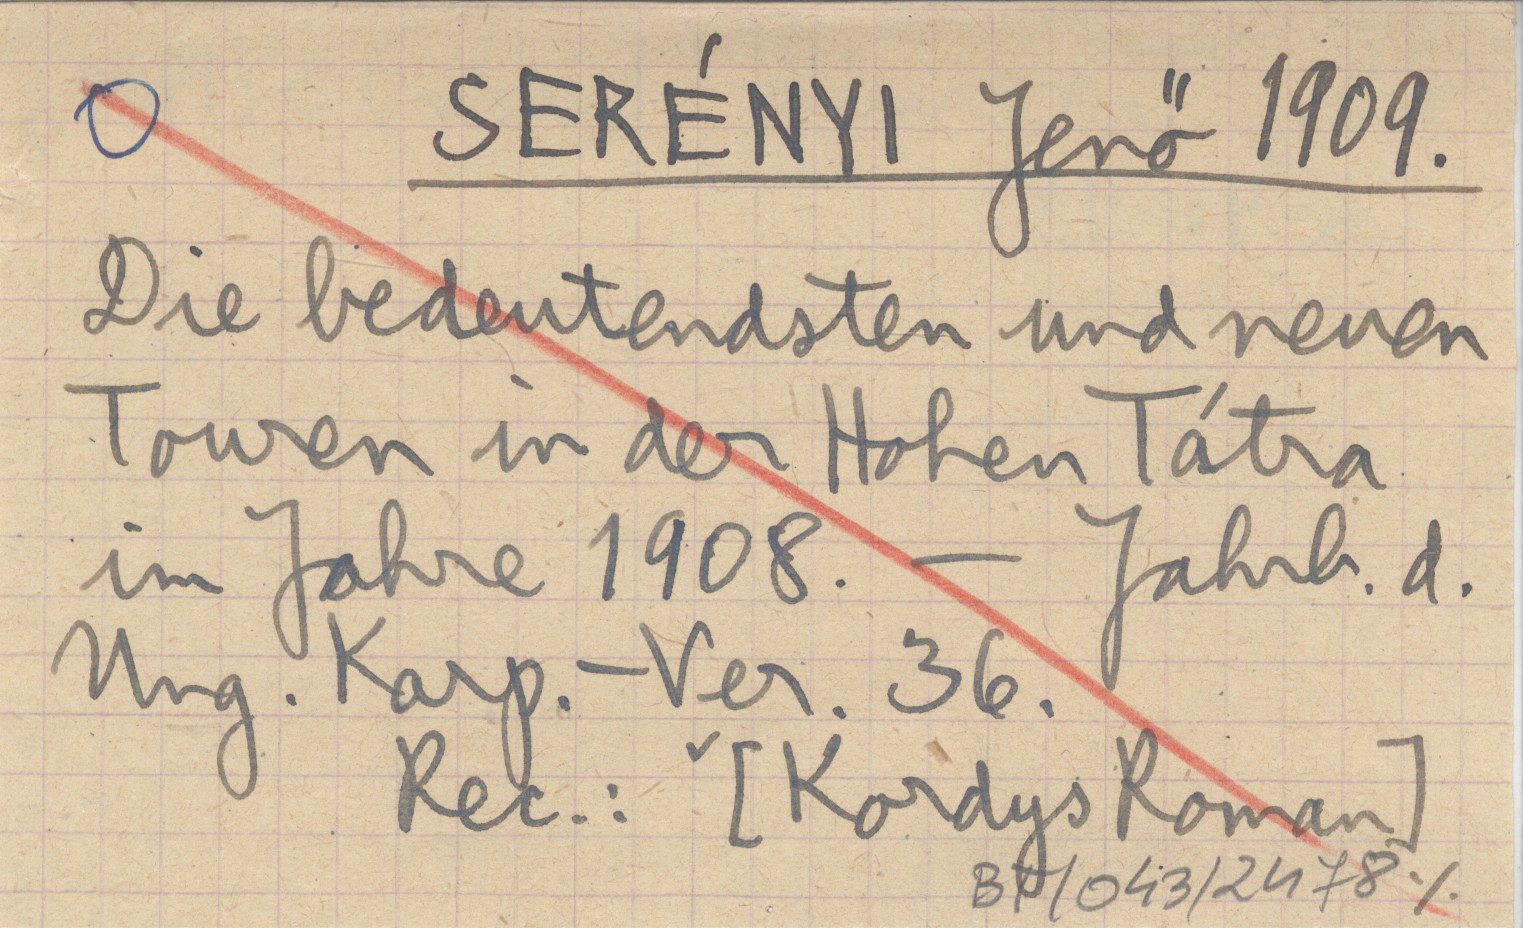 O SERÉNYI Jenő 1909.
Die bedeutendsten und neuen
Touren in der Hohen Tátra
im Jahre 1908. — Jahrb. d.
Ung. Karp.-Ver. 36.
Rec.: ˇ[Kordys Roman]
BP/043/2478 ./.